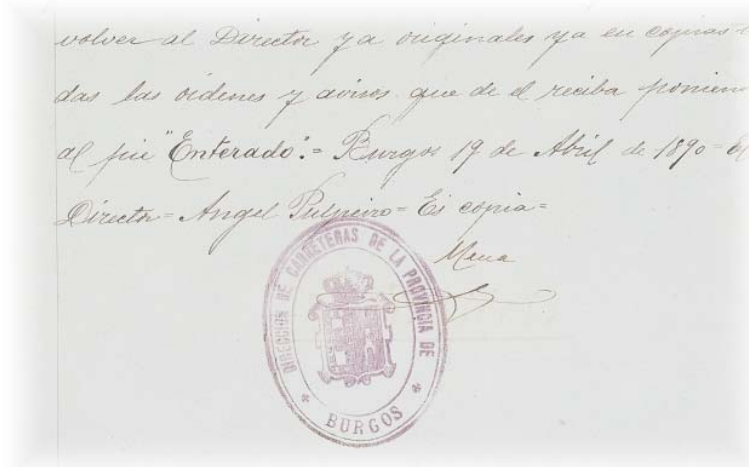 volver al Director ya originales ya en copias
das las ordenes y avisos que de el reciba ponien
al pie "Enterado".= Burgos 19 de Abril de 1890=El
Director= Angel Pulpeiro= Es copia=
Mena
DIRECCION DE CARRETERAS DE LA PROVINCIA DE
* BURGOS *